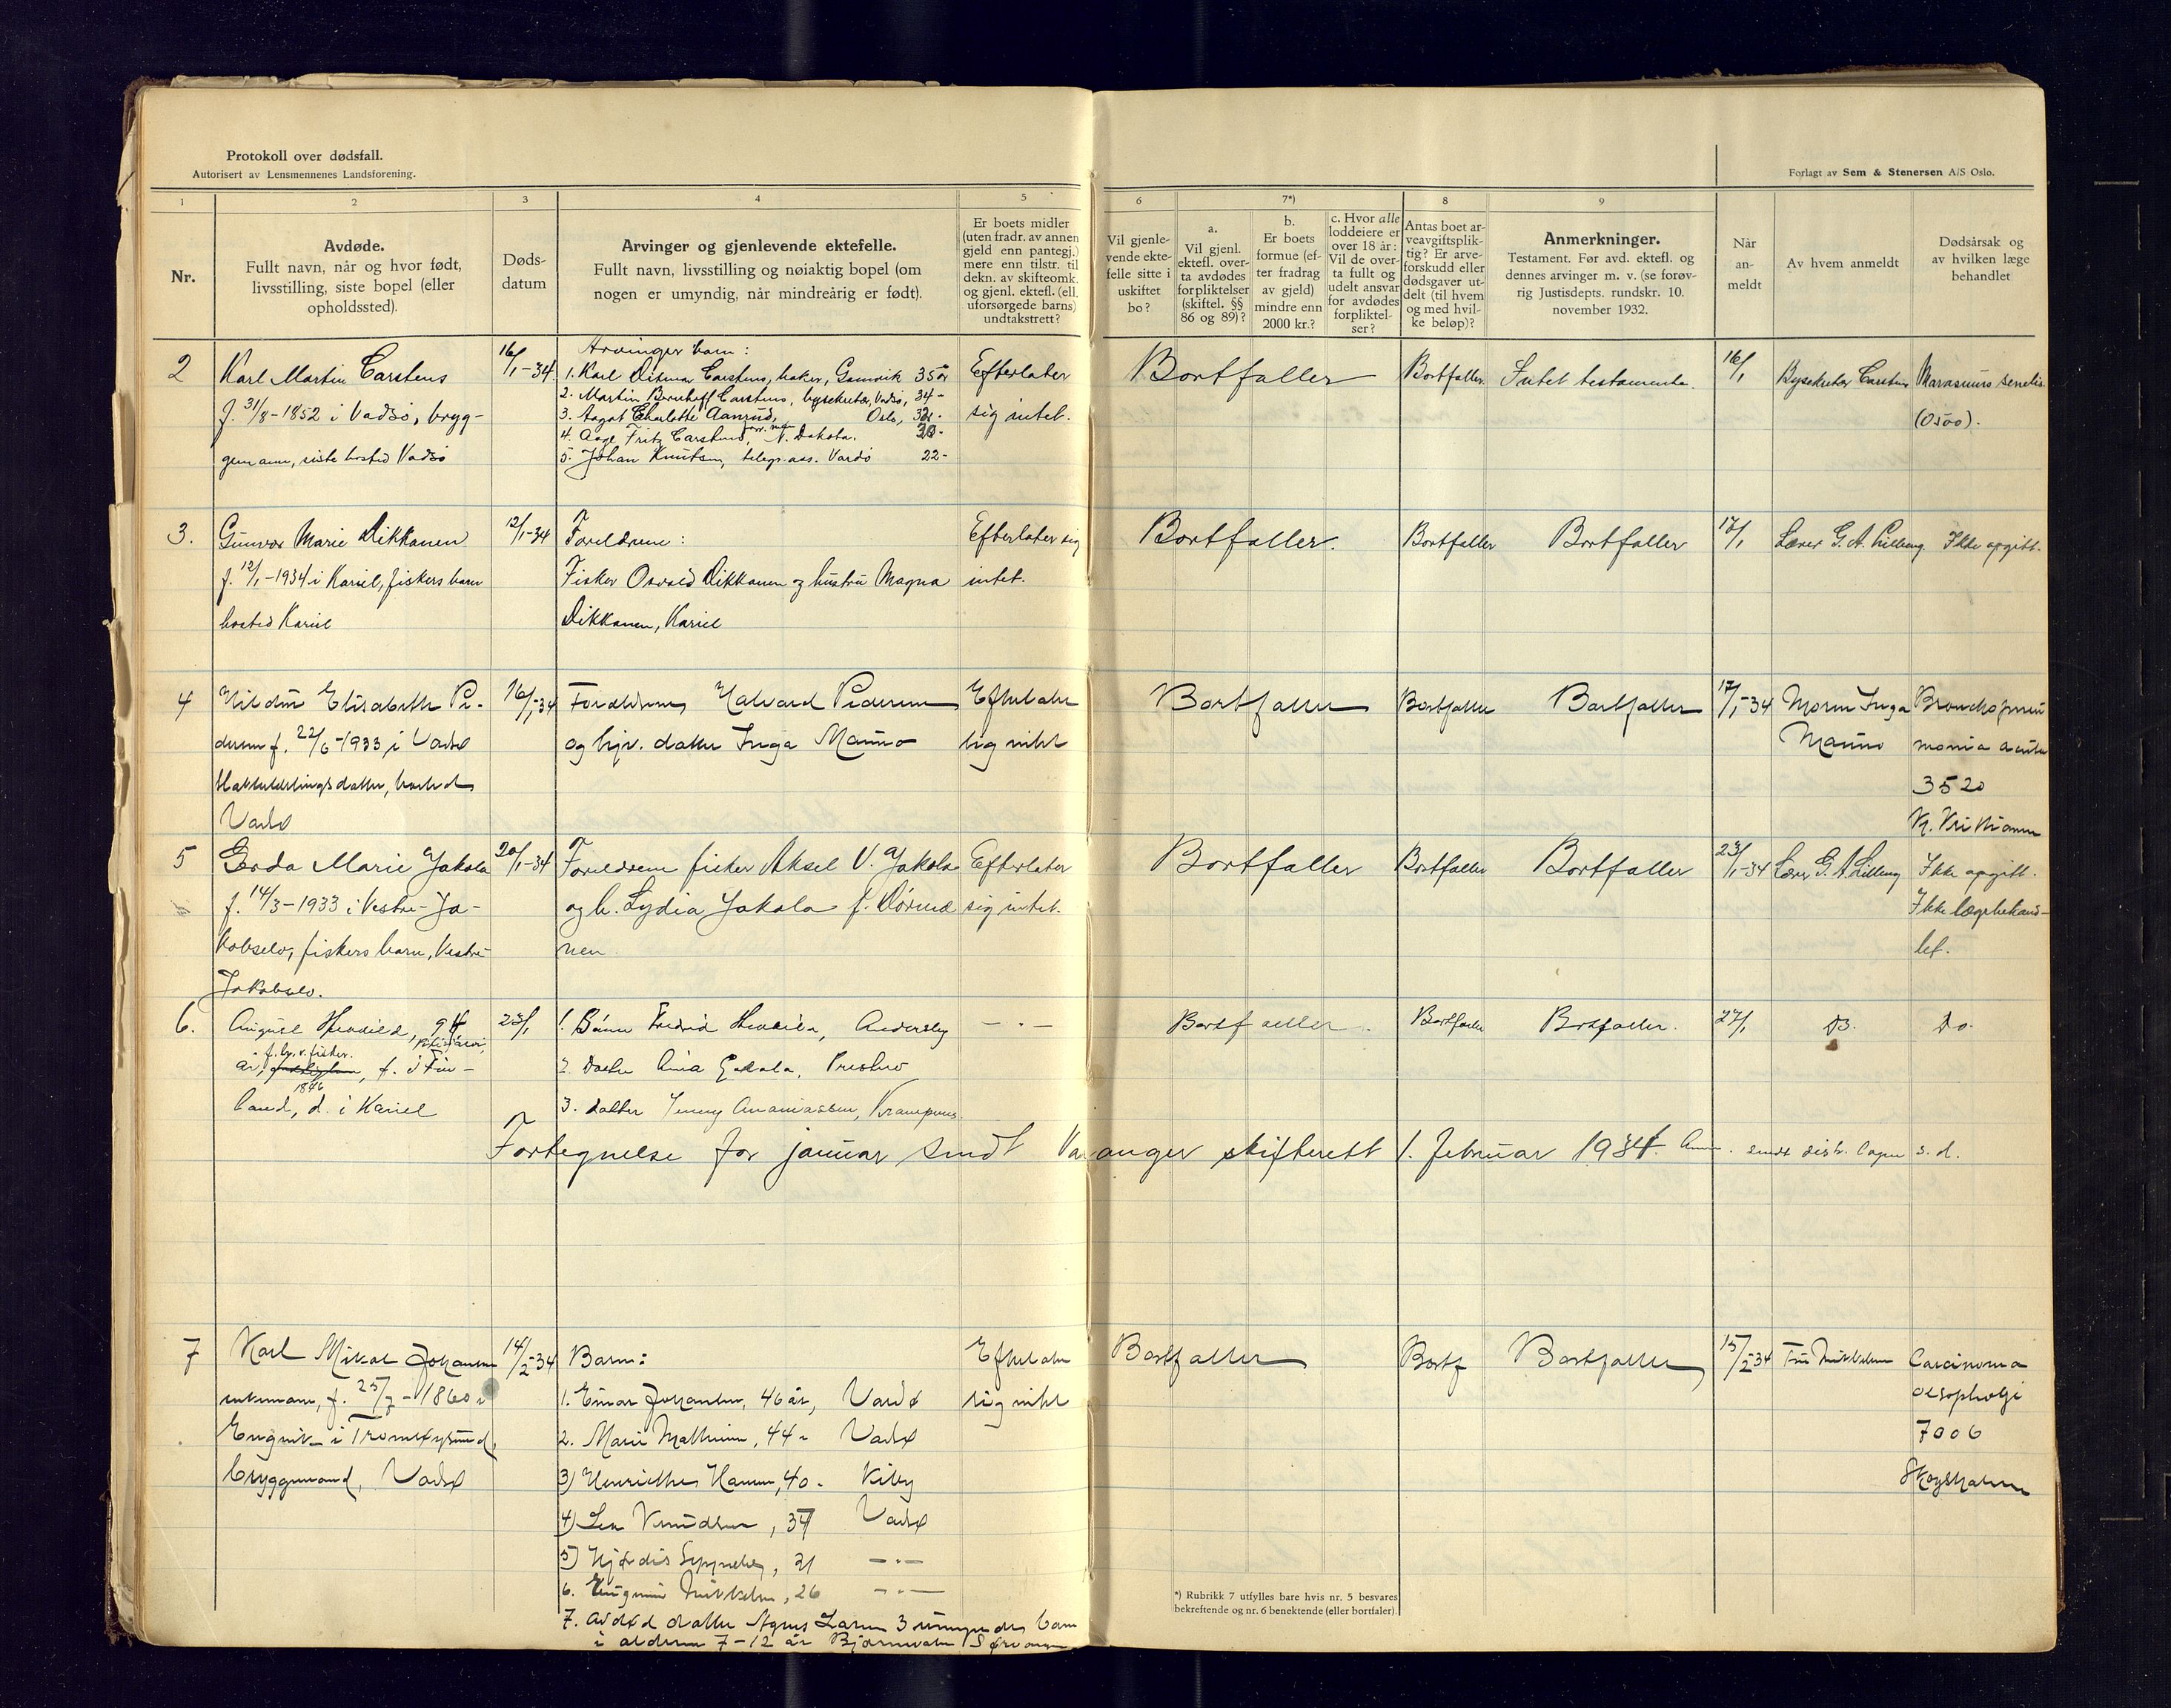 Protokoll over dødsfall.
Autorisert av Lensmennenes Landsforening.
Forlagt av Sem & Stenersen A/S Oslo.
1
2
3
4
5
6
7*)
8
9
Nr.
Avdøde.
Fullt navn, når og hvor født,
livsstilling, siste bopel (eller
opholdssted).
Døds-
datum
Arvinger og gjenlevende ektefelle.
Fullt navn, livsstilling og nøiaktig bopel (om
nogen er umyndig, når mindreårig er født).
Er boets midler
(uten fradr. av annen
gjeld enn pantegj.)
mere enn tilstr. til
dekn. av skifteomk.
og gjenl. ektefl. (ell.
uforsørgede barns)
undtakstrett?
Vil gjenle-
vende ekte-
felle sitte i
uskiftet
bo?
a.
Vil gjenl.
ektefl. over-
ta avdødes
forpliktelser
(skiftel. §§
86 og 89)?
b.
Er boets
formue (ef-
ter fradrag
av gjeld)
mindre enn
2000 kr.?
c. Hvor alle
loddeiere er
over 18 år:
Vil de over-
ta fullt og
udelt ansvar
for avdødes
forpliktel-
ser?
Antas boet ar-
veavgiftsplik-
tig? Er arve-
forskudd eller
dødsgaver ut-
delt (til hvem
og med hvil-
ke beløp)?
Anmerkninger.
Testament. Før avd. ektefl. og
dennes arvinger m. v. (se forøv-
rig Justisdepts. rundskr. 10.
november 1932.
Når
an-
meldt
Av hvem anmeldt
Dødsårsak og
av hvilken læge
behandlet
2
Karl Martin Carstens
f. 31/8-1852 i Vadsö, bryg-
gemann, siste bosted Vadsö
16/1-34.
Arvinger barn:
1. Karl Ditmar Carstens, baker, Gamvik 35 år
2. Martin Bernhoff Carstens, bysekretær, Vadsö, 34-
3. Aagot Charlotte Aanrud, Oslo, 32-
4. Aage Fritz Carstens, N. Dakota. 30-
5. Johan Knutsen, telegr.ass. Vardö 22-
Efterlater
sig intet.
Bortfaller
Bortfaller
Intet testamente.
16/1
Bysekretær Carstens
Marasmus senilis
(0500).
3.
Gunvor Marie Dikkanen
f. 12/1-1934 i Kariel, fiskers barn
bosted Kariel
12/1-34
Foreldrene:
Fisker Osvald Dikkanen og hustru Magna
Dikkanen, Kariel
Efterlater sig
intet.
Bortfaller.
Bortfaller
Bortfaller
17/1
Lærer G. A. Lilleeng
Ikke opgitt.
4
Hildur Elisabeth Pe-
dersen f. 22/6-1933 i Vadsø
datter, bosted
Vadsø
16/1-34
Foreldrene Halvard Pedersen
og hjv. datter Inga Mauno
Efterlater
sig intet
Bortfaller
Bortfaller
Bortfaller
17/1-34
Moren Inga
Mauno
Bronchopneu
monia acuta
3520
K. Kristiansen
5
Gerda Marie Jakola
f. 14/3-1933 i Vestre-Ja-
kobselv, fiskers barn, Vestre-
Jakobselv.
20/1-34
Foreldrene fisker Aksel V. Jakola
og h. Lydia Jakola f. Dörme
nen
Efterlater
sig intet.
Bortfaller
Bortfaller
Bortfaller
23/1-34
Lærer G. A Lilleeng
Ikke opgitt.
Ikke lægebehand-
let.
6.
August 94
år, f. i Fin-
1846
land, d. i Kariel
23/1
1. Sönn Fredrik Andersby
2. Datter
3. datter Jenny Ananiassen, Krampenes
— " —
Bortfaller.
Bortfaller
Bortfaller.
27/1
Do.
Do
Fortegnelse for januar sendt Varanger skifterett 1. februar 1934. sendt distr. lægen s. d.
7
Karl Mikal Johansen
enkemann, f. 25/7-1860 i
Engvik i Tromsøysund,
bryggemand, Vadsø
14/2-34
Barn:
1. Einar Johansen, 46 år, Vardø
2. Marie Mathisen, 44 " Vadsø
3) Henriette Hansen, 40 - Kiby
4) Lea Knudsen, 37 Vadsø
5) Hjørdis 31 — " —
6. Mikkelsen, 26 — " —
7. avdød datter Agnes Larsen 3 umyndige barn
i alderen 7-12 år Bjørnevatn
Efterlater
sig intet
Bortfaller
Bortf
Bortfaller
15/2-34
Fru Mikkelsen
Carcinoma
oesophagi
7006
Skogsholm
*) Rubrikk 7 utfylles bare hvis nr. 5 besvares
bekreftende og nr. 6 benektende (eller bortfaler).